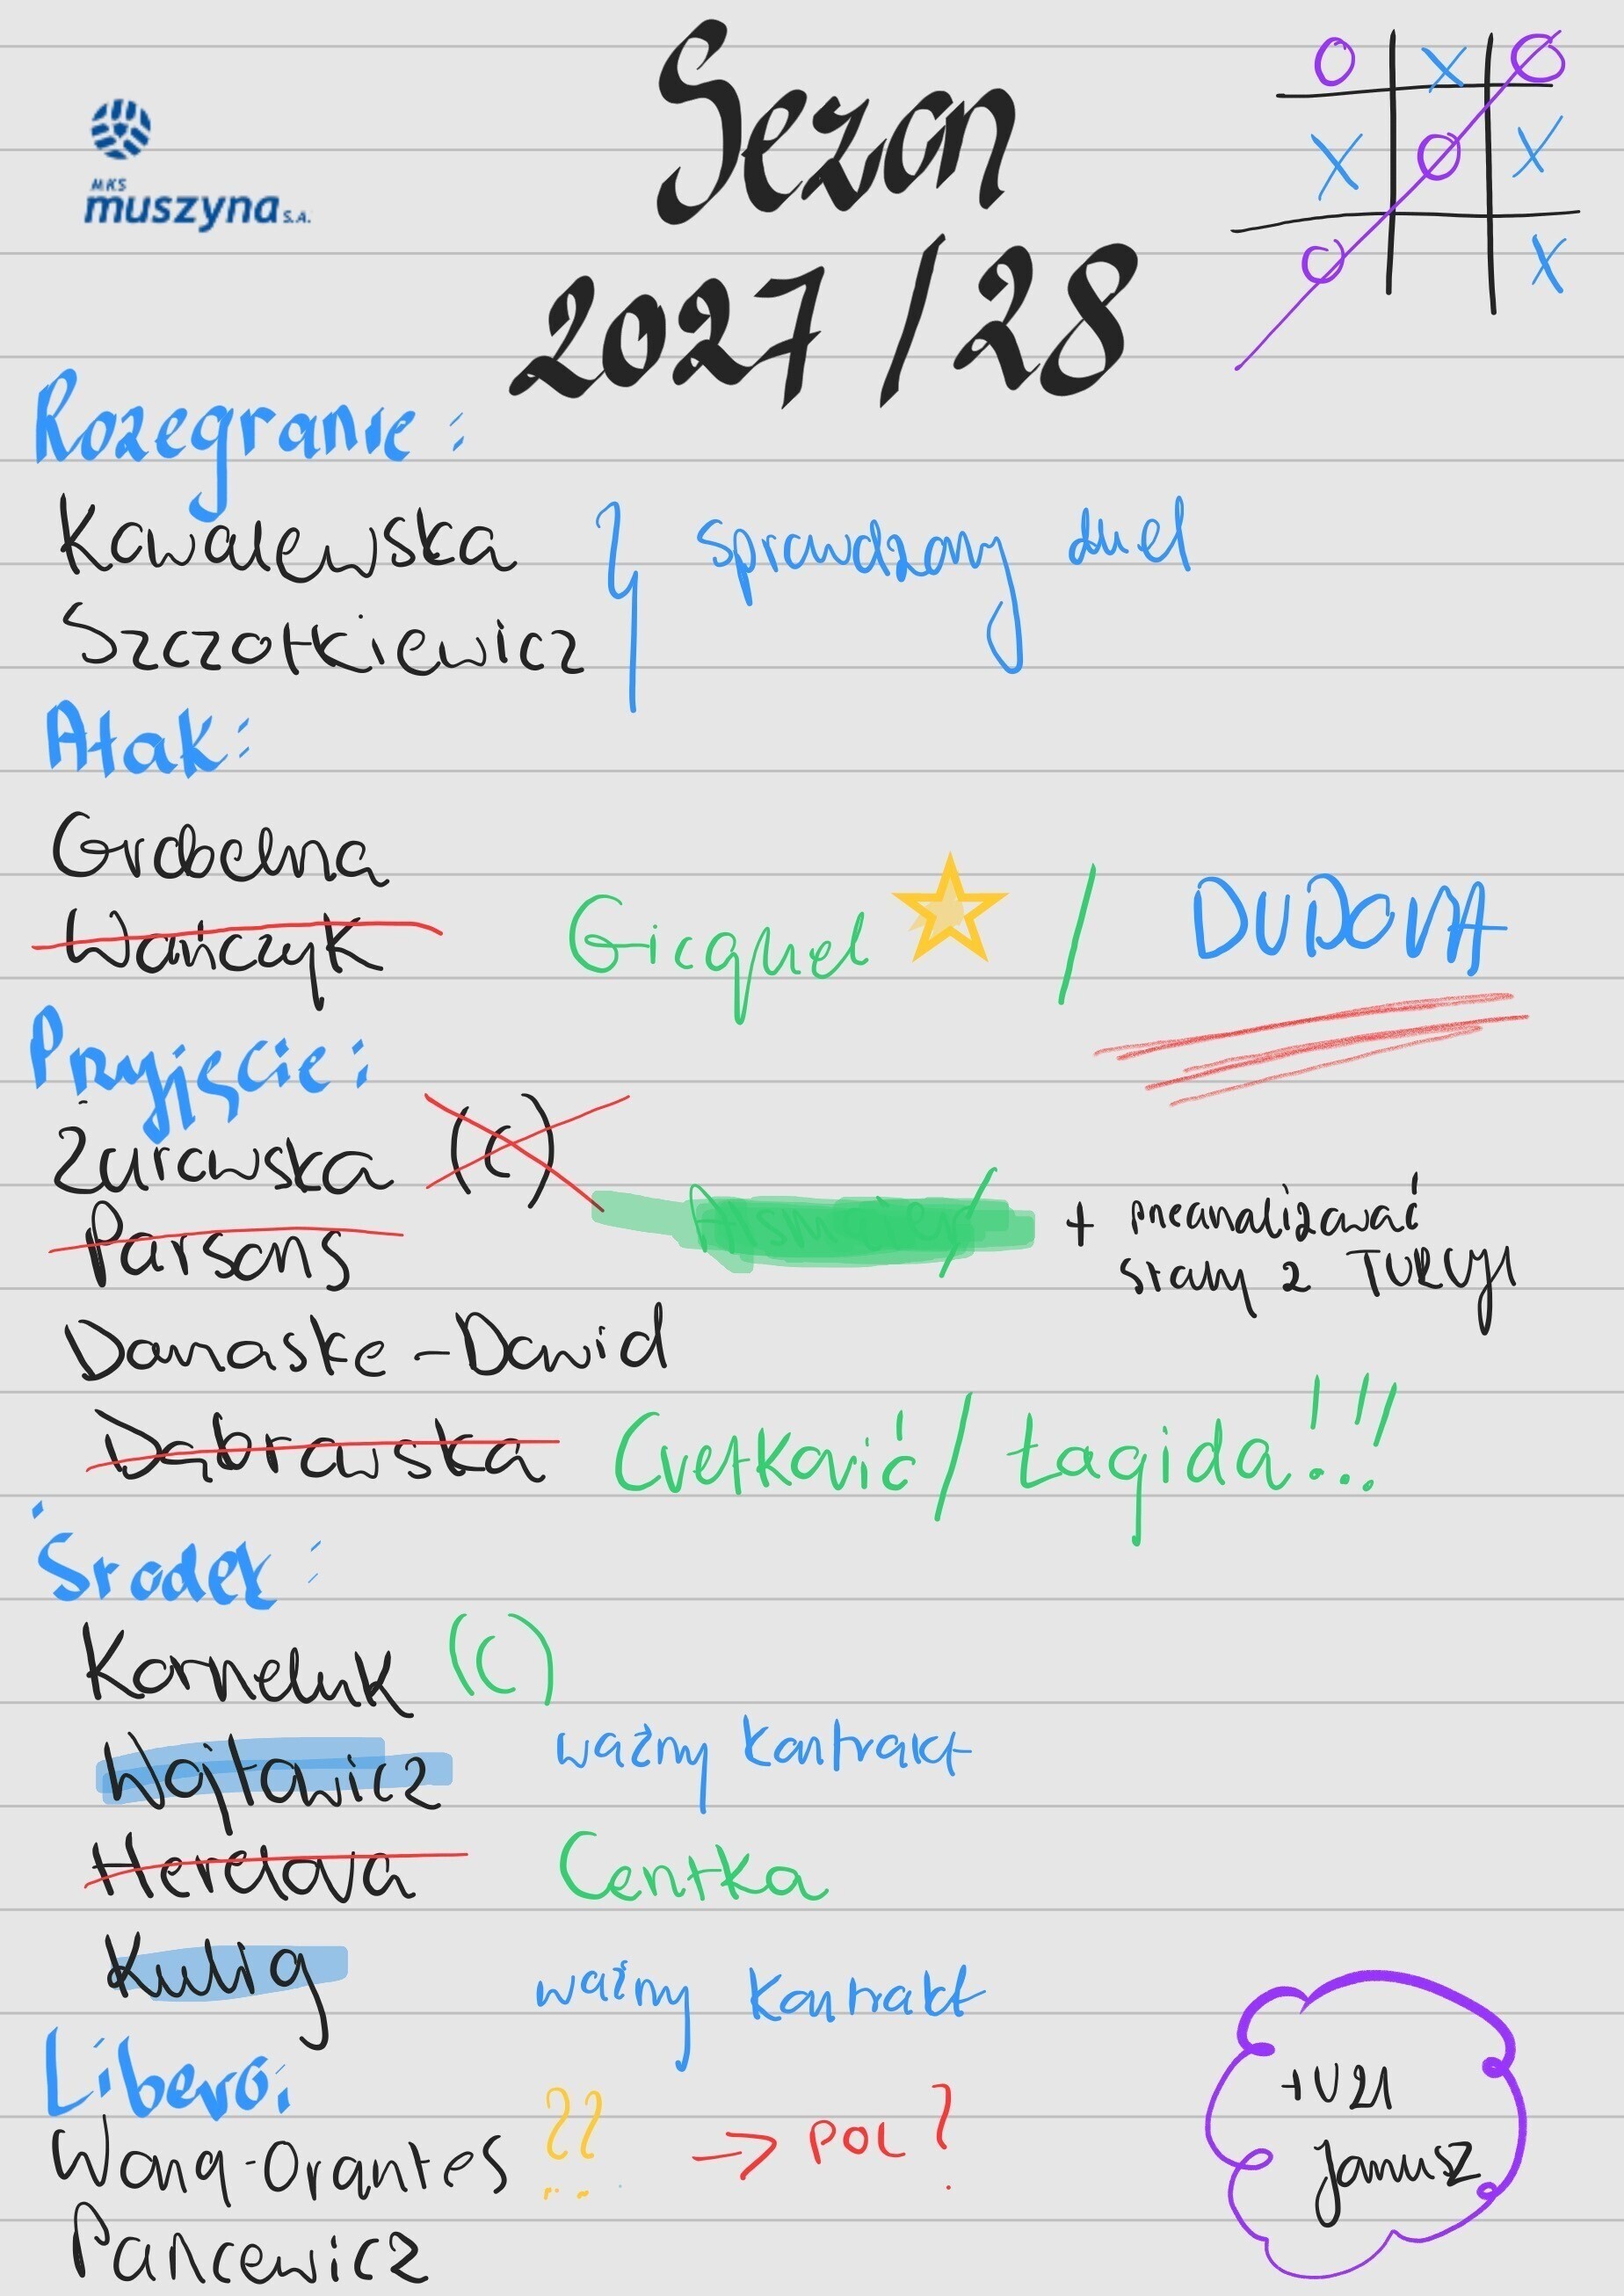 MKS
muszyna S.A.
Sezon
2027/28
O X O
X O X
O X
Rozegranie:
Kowalewska } sprawdzony duet
Szczotkiewicz
Atak:
Grabelna
Wańczyk Gicquel / DUDOVA
Przyjęcie:
Żurawska (C)
Parsons + przeanalizować
stany z TURCJI
Damaske-Dawid
Dąbrowska Cvetković / Łagida!!!
Środek:
Korneluk (C)
Wójtowicz ważny kontrakt
Herdova Centka
Kulig ważny kontrakt
Libero:
Wong-Orantes ?? → POL?
Pancewicz
+U21
Janusz